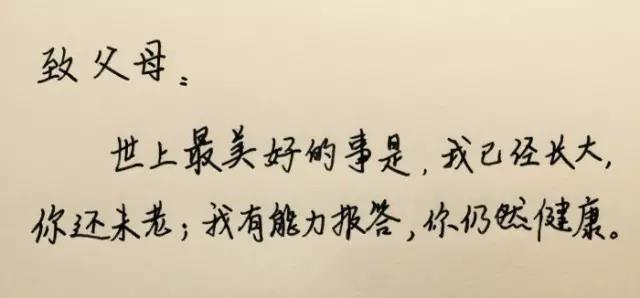 致父母：
世上最美好的事是，我已经长大，
你还未老；我有能力报答，你仍然健康。